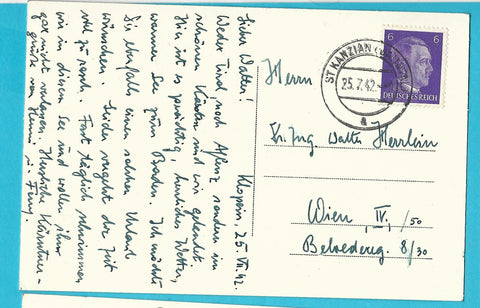 Klopein, 25. VII. 42.
Lieber Walter!
Weder Tirol noch Aflenz sondern im
schönen Kärnten sind wir gelandet.
Hier ist es prächtig, herrliches Wetter,
warmer See zum Baden. Ich möchte
Dir ebenfalls einen solchen Urlaub
wünschen. Leider vergeht die Zeit
viel zu rasch. Fast täglich schwimmen
wir in diesem See und wollen ihn
gar nicht verlassen. Herzliche Kärntner-
grüße von Hermi u.
ST KANZIAN
25.7.42
a
6 6
DEUTSCHES REICH
Herrn
Dr. Ing. Walter Herrlein
Wien IV. /50
Belvedereg. 8/30